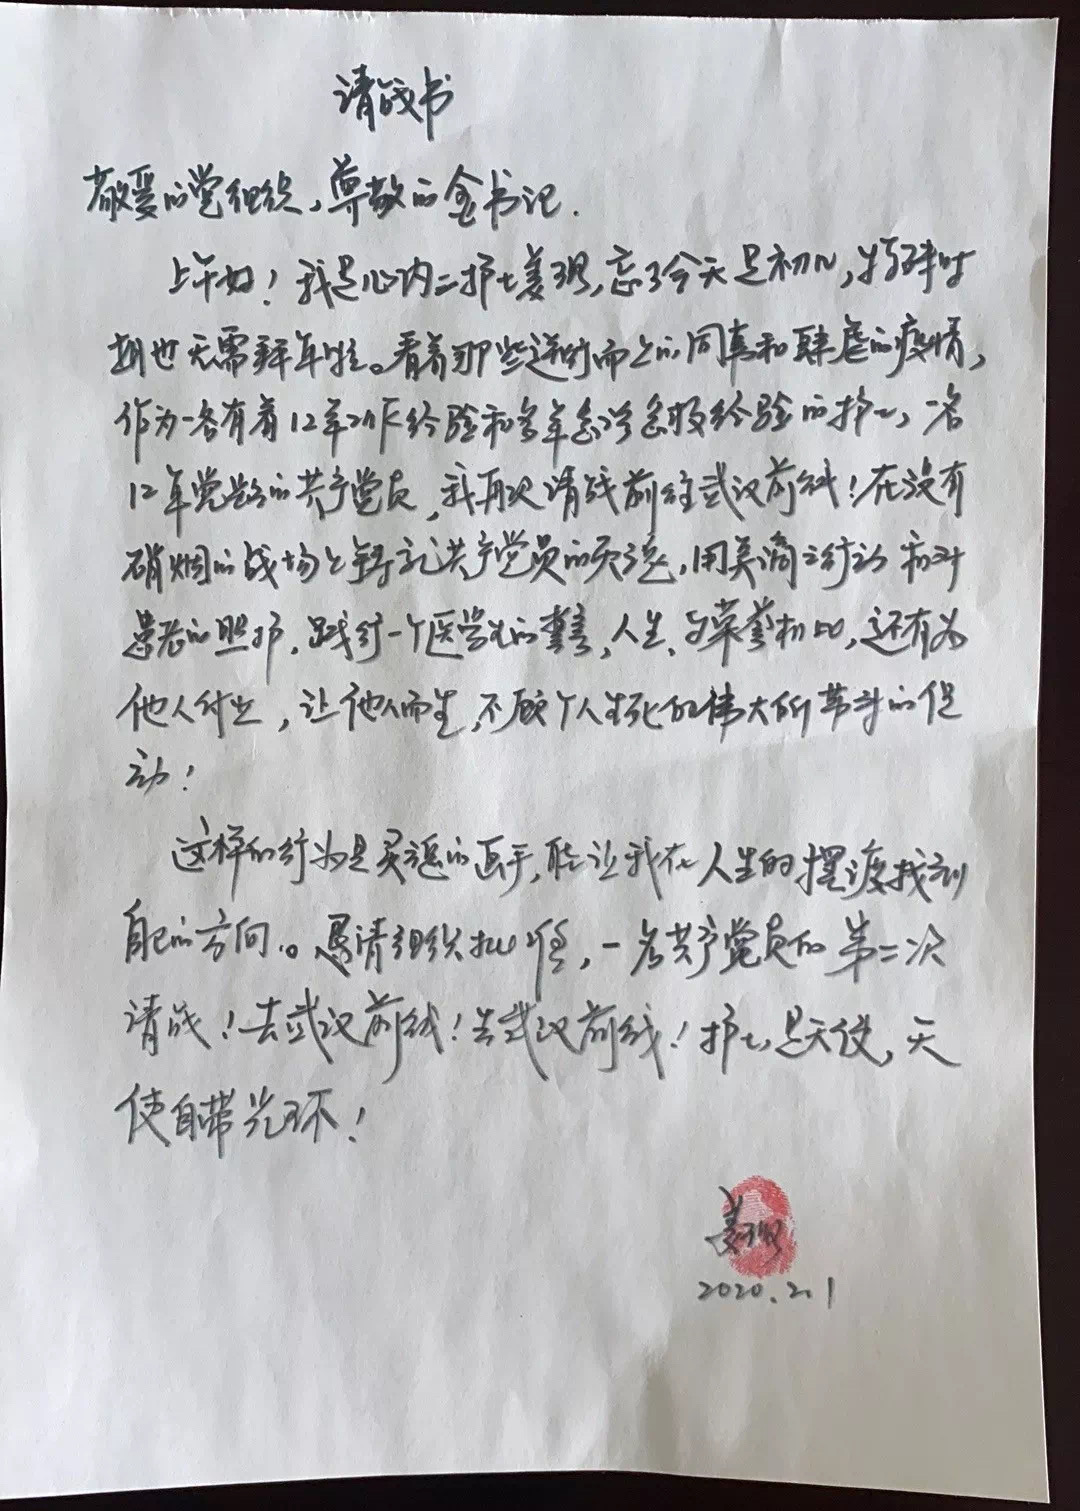 请战书
敬爱的党组织，尊敬的金书记.
上午好！我是心内二护士姜，忘了今天是初八，特殊时
期也无需拜年啦。看着那些逆时而上的同事和肆虐的疫情，
作为一名有着12年工作经验和多年急诊急救经验的护士，一名
12年党龄的共产党员，我再次请战前往武汉前线！在没有
硝烟的战场上铸记共产党员的灵魂，用点滴之行动和对
患者的照护，践行一个医学生的誓言，人生，与荣誉和，还有为
他人付出，让他人而生，不顾个人生死的伟大所带来的促
动！
这样的行为是灵魂的，能让我在人生的摆渡找到
自己的方向。恳请组织批准，一名共产党员的第二次
请战！去武汉前线！去武汉前线！护士是天使，天
使自带光环！
姜
2020.2.1